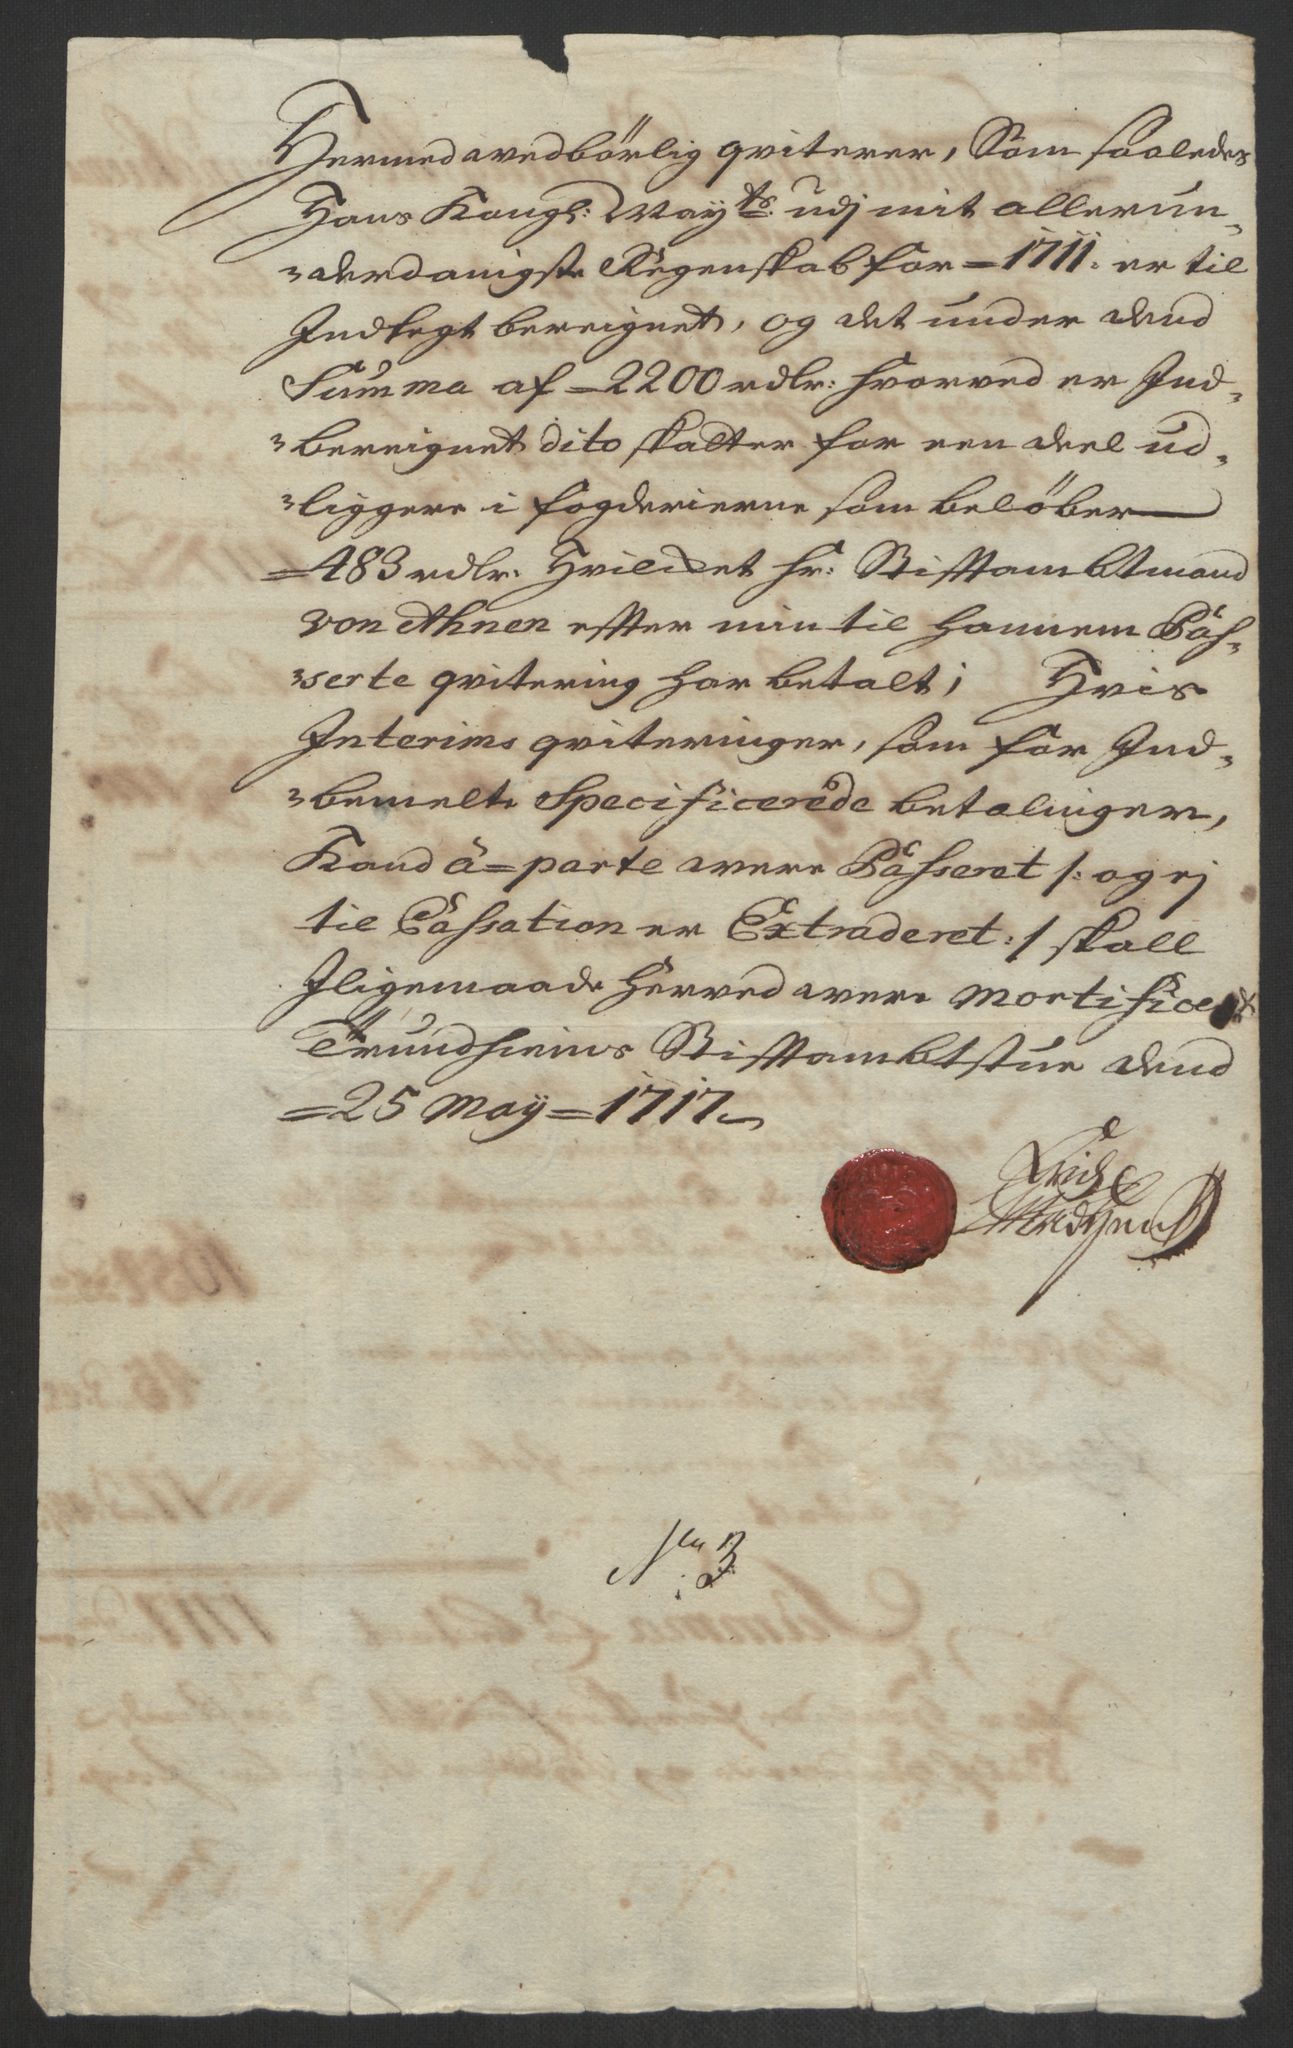 Hermed a vedbörlig qviterer, Som saaledes
Hans Kongl: Mayts. udj mit allerun-
-derdanigste Regenskab for =1711. er til
Indtegt bereignet, og det under dend
Summa af =2200 rdlr: hvorved er Ind-
-bereignet dito skatter for een deel ud-
-liggere i fogderierne som belöber
=483 rdlr. Hvilchet hr: Stifftambtmand
von Ahnen effter min til hannem Pas-
-serte qvitering har betalt; Hvis
Interims qviteringer, som for Ind-
-bemelte Specificerede betalinger,
Kand á=parte være Passeret /: og ej
til Cassation er Extraderet :/ skall
Iligemaade herved være Mortificeret
Trundhiems Stifftambtstue dend
=25 May = 1717
No 3